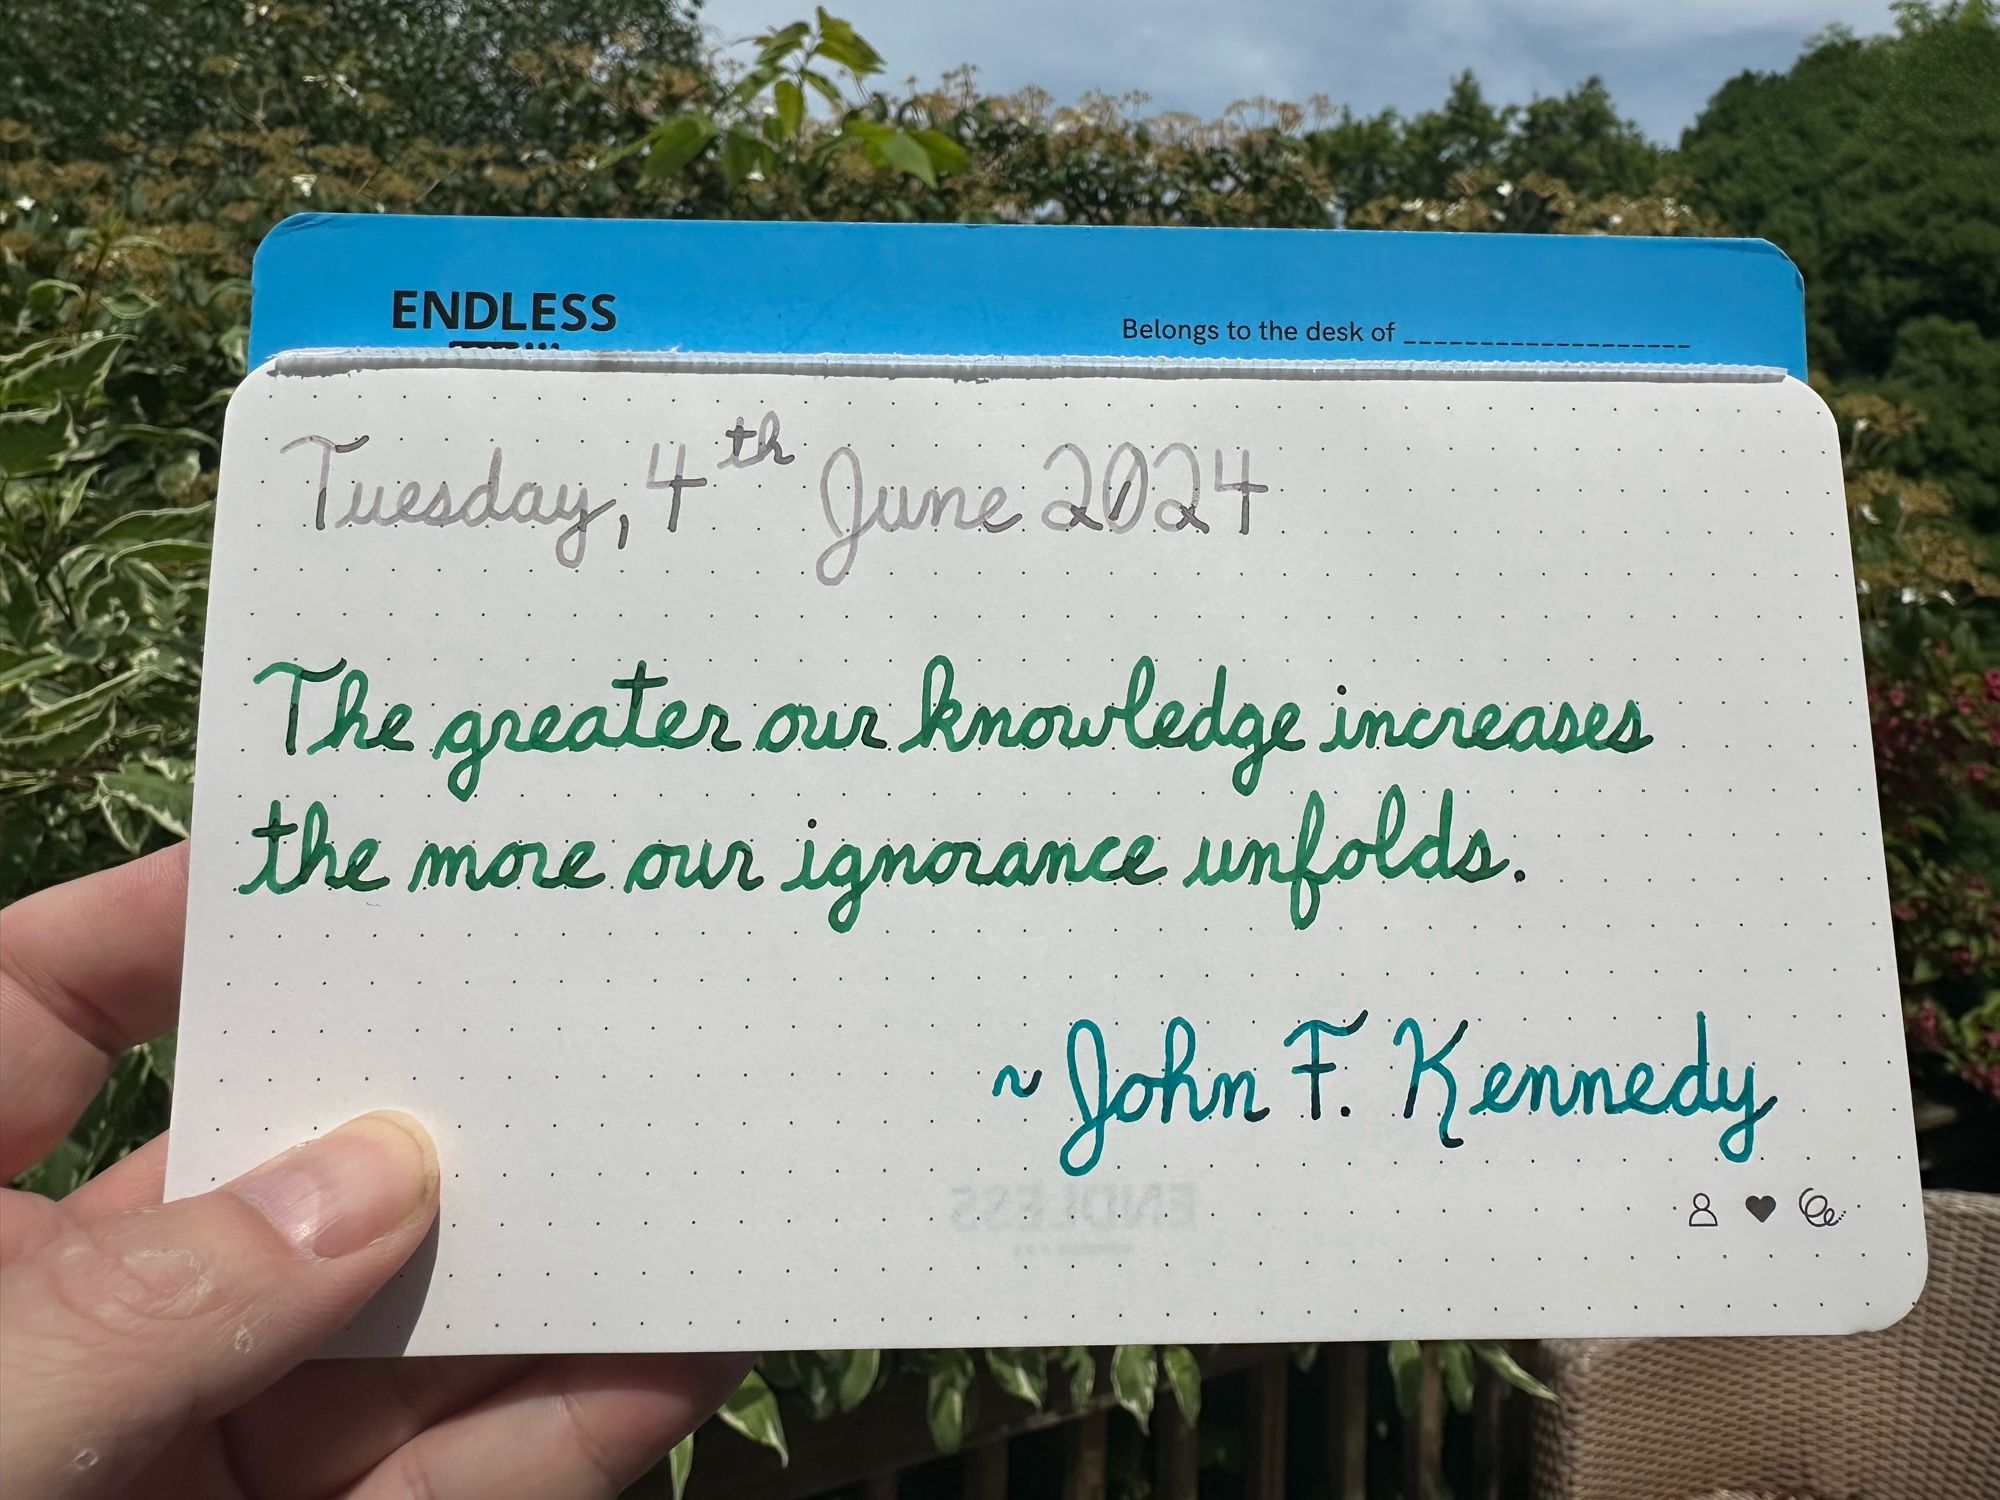 ENDLESS
Belongs to the desk of ____________________
Tuesday, 4th June 2024
The greater our knowledge increases
the more our ignorance unfolds.
~ John F. Kennedy
ENDLESS